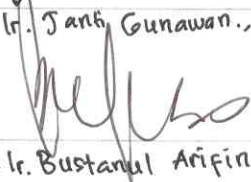 Ir. Janti Gunawan.,
Ir. Bustanul Arifin